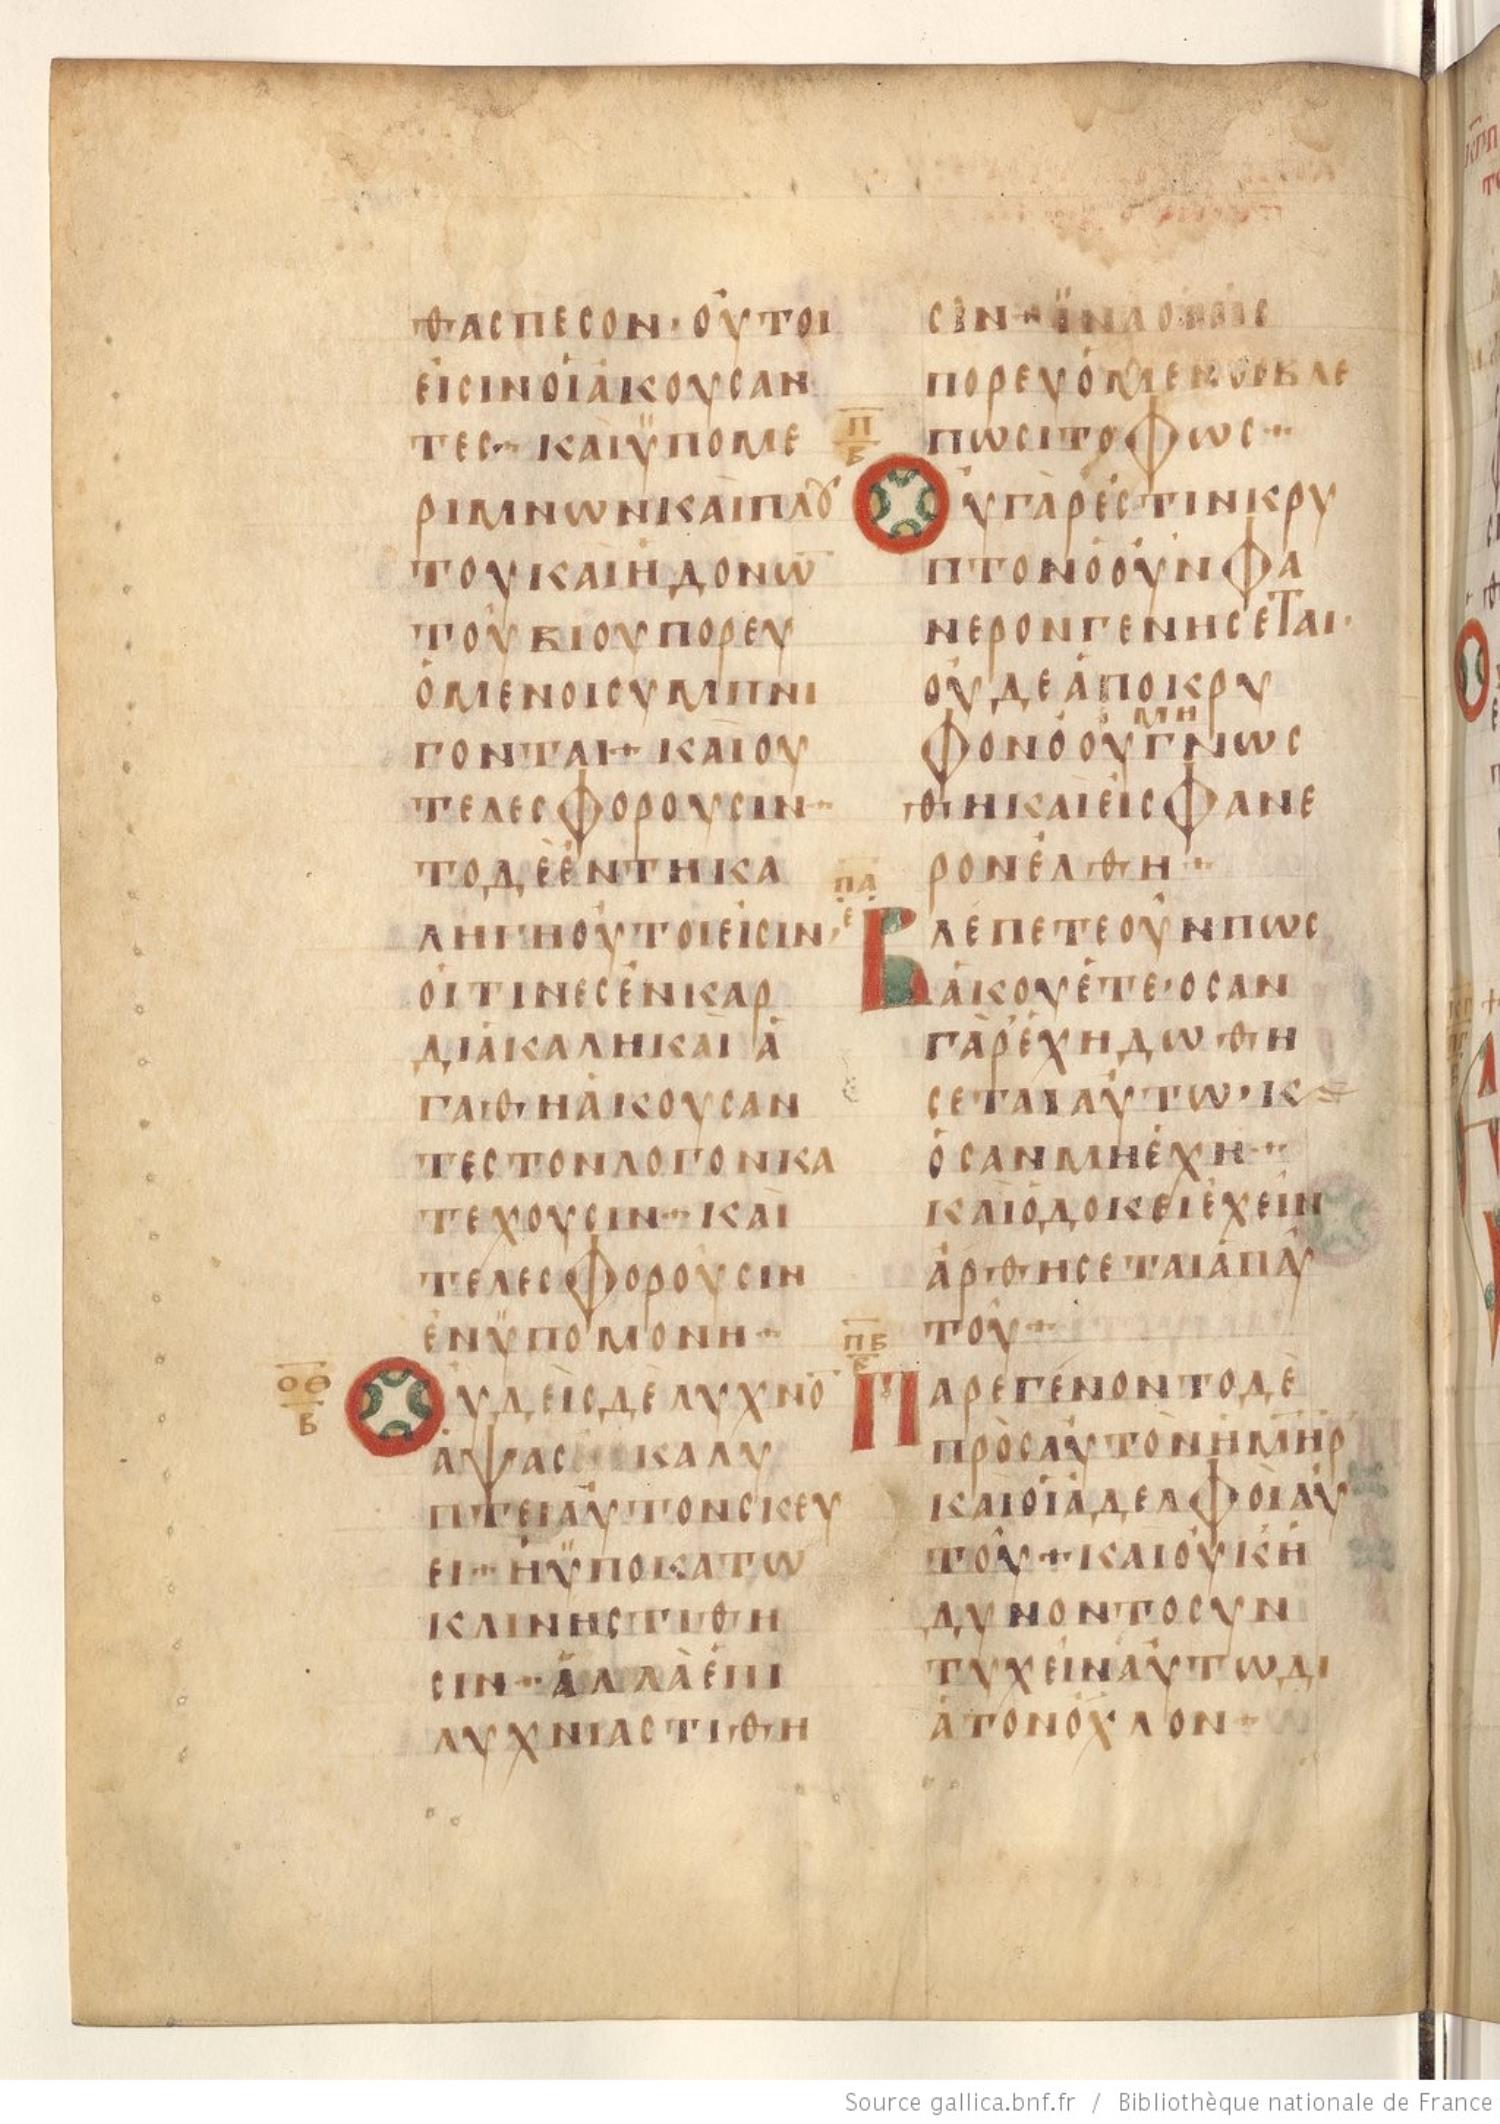 θασπεσον· ὁύτοι
ἐισινὁιἀκουσαν
τες· καιϋπομε
ριμνωνκαιπλȣ
τουκαιἡδονω̅
τοῦβιουπορευ
ὁμενοισυμπνι
γονται+ καιου
τελεσφορουσιν·
τοδὲἐντηκα
ληγηοὑτοιεἰσιν,
ὁιτινεσἐνκαρ
διακαληκαι ἀ
γαθηἀκουσαν
τεστονλογονκα
τεχουσιν· και
τελεσφορουσιν
ἐνϋπομονη+
οθ
β
Ουδεὶςδὲλυχνο̅
ἁψας καλυ
πτειαὐτονσκευ
ει· ἠϋποκατω
κλινηςτιθη
σιν· ἀλλὰἐπι
λυχνιαςτιθη
σιν+ ϊναοἱ
πορευόμενοιβλε
πωσιτοφως·
π
β
Ουγὰρἐστινκρυ
πτονὁοὐνφα
νερονγενησεται·
οὐδεἀποκρυ
μη
φονὁοὐγνως
θηκαιεἰςφανε
ρονἐλθη+
πα
ε
Βλέπετεοὖνπως
ἀκουέτε· οσαν
γὰρἐχηδωθη
σεταιαὐτω, κ
ὁσανμηἐχη·
καιὁδοκειἐχειν
ἀρθησεταιἀπαυ
του+
πβ
ε
Παρεγένοντοδὲ
πρὸςαὐτὸνἡμη̅ρ
καιοἱἀδελφοὶαυ
τοῦ+ καιοὐκἠ
δυνοντοσυν
τυχεῖναὐτωδι
ἀτονὀχλον+
Source gallica.bnf.fr / Bibliothèque nationale de France